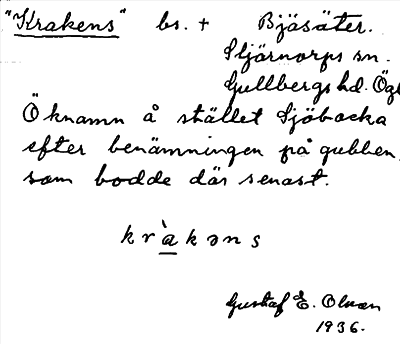 "Krakens" bs. + Bjäsäter.
Stjärnorps sn.
Gullbergs hd. Ögl
Öknamn å stället Sjöbacka
efter benämningen på gubben,
som bodde där senast.
kràkəns
Gustaf E. Olson
1936.